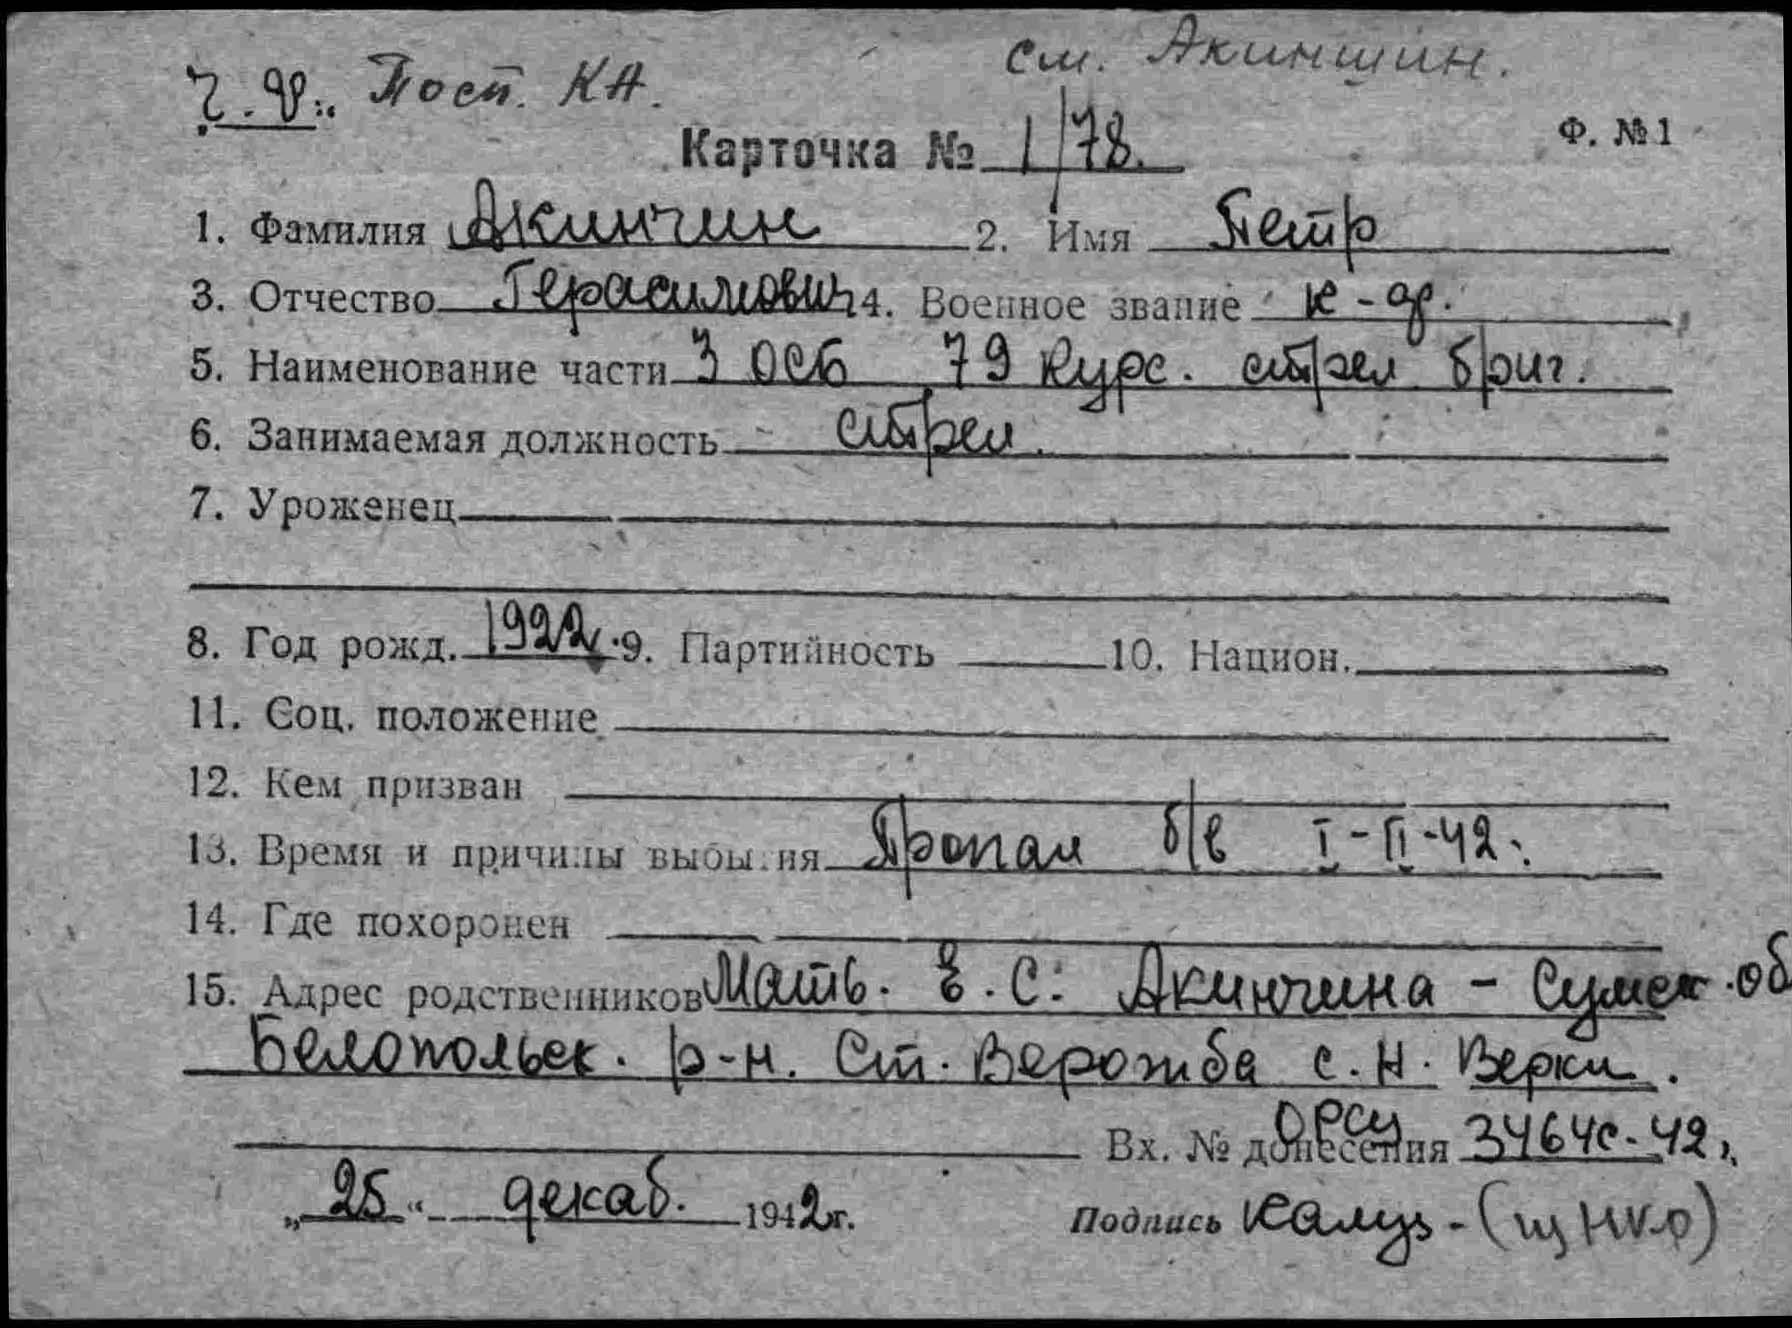 см. Акиншин.
Ч.Ф.. Пост. КА.
Карточка № 1/78. Ф. №1
1. Фамилия Акинчин 2. Имя Петр
3. Отчество Герасимович 4. Военное звание к-ар.
5. Наименование части 3 ОСБ 79 Курс. стрел бриг.
6. Занимаемая должность - стрел.
7. Уроженец
8. Год рожд. 1922 9. Партийность 10. Национ.
11. Соц. положение
12. Кем призван
13. Время и причины выбытия Пропал б/в I-II-42.
14. Где похоронен
15. Адрес родственников Мать. Е. С. Акинчина - Сумск. об
Белопольск. р-н. Ст. Ворожба с. Н. Верки.
ОРСУ
Вх. № донесения 3464с-42
„25“ декаб. 1942г. Подпись